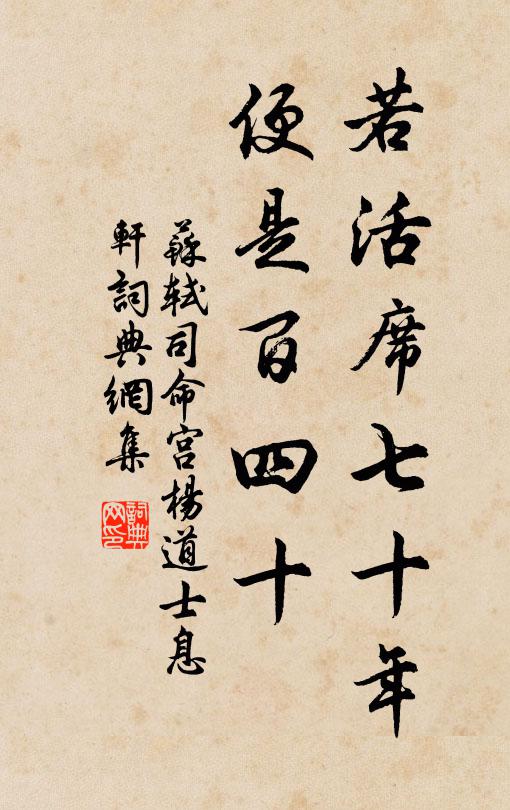 若活席七十年
便是百四十
蘇軾司命宮楊道士息
軒詞典網集
詞典
网印